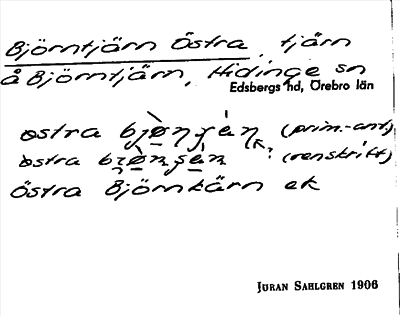 Björntjärn Östra, tjärn
å Björntjärn, Hidinge sn
Edsbergs hd, Örebro län
östra (prim.-ant)
östra ? (renskrift)
östra Björnkärn ek
JÖRAN SAHLGREN 1906